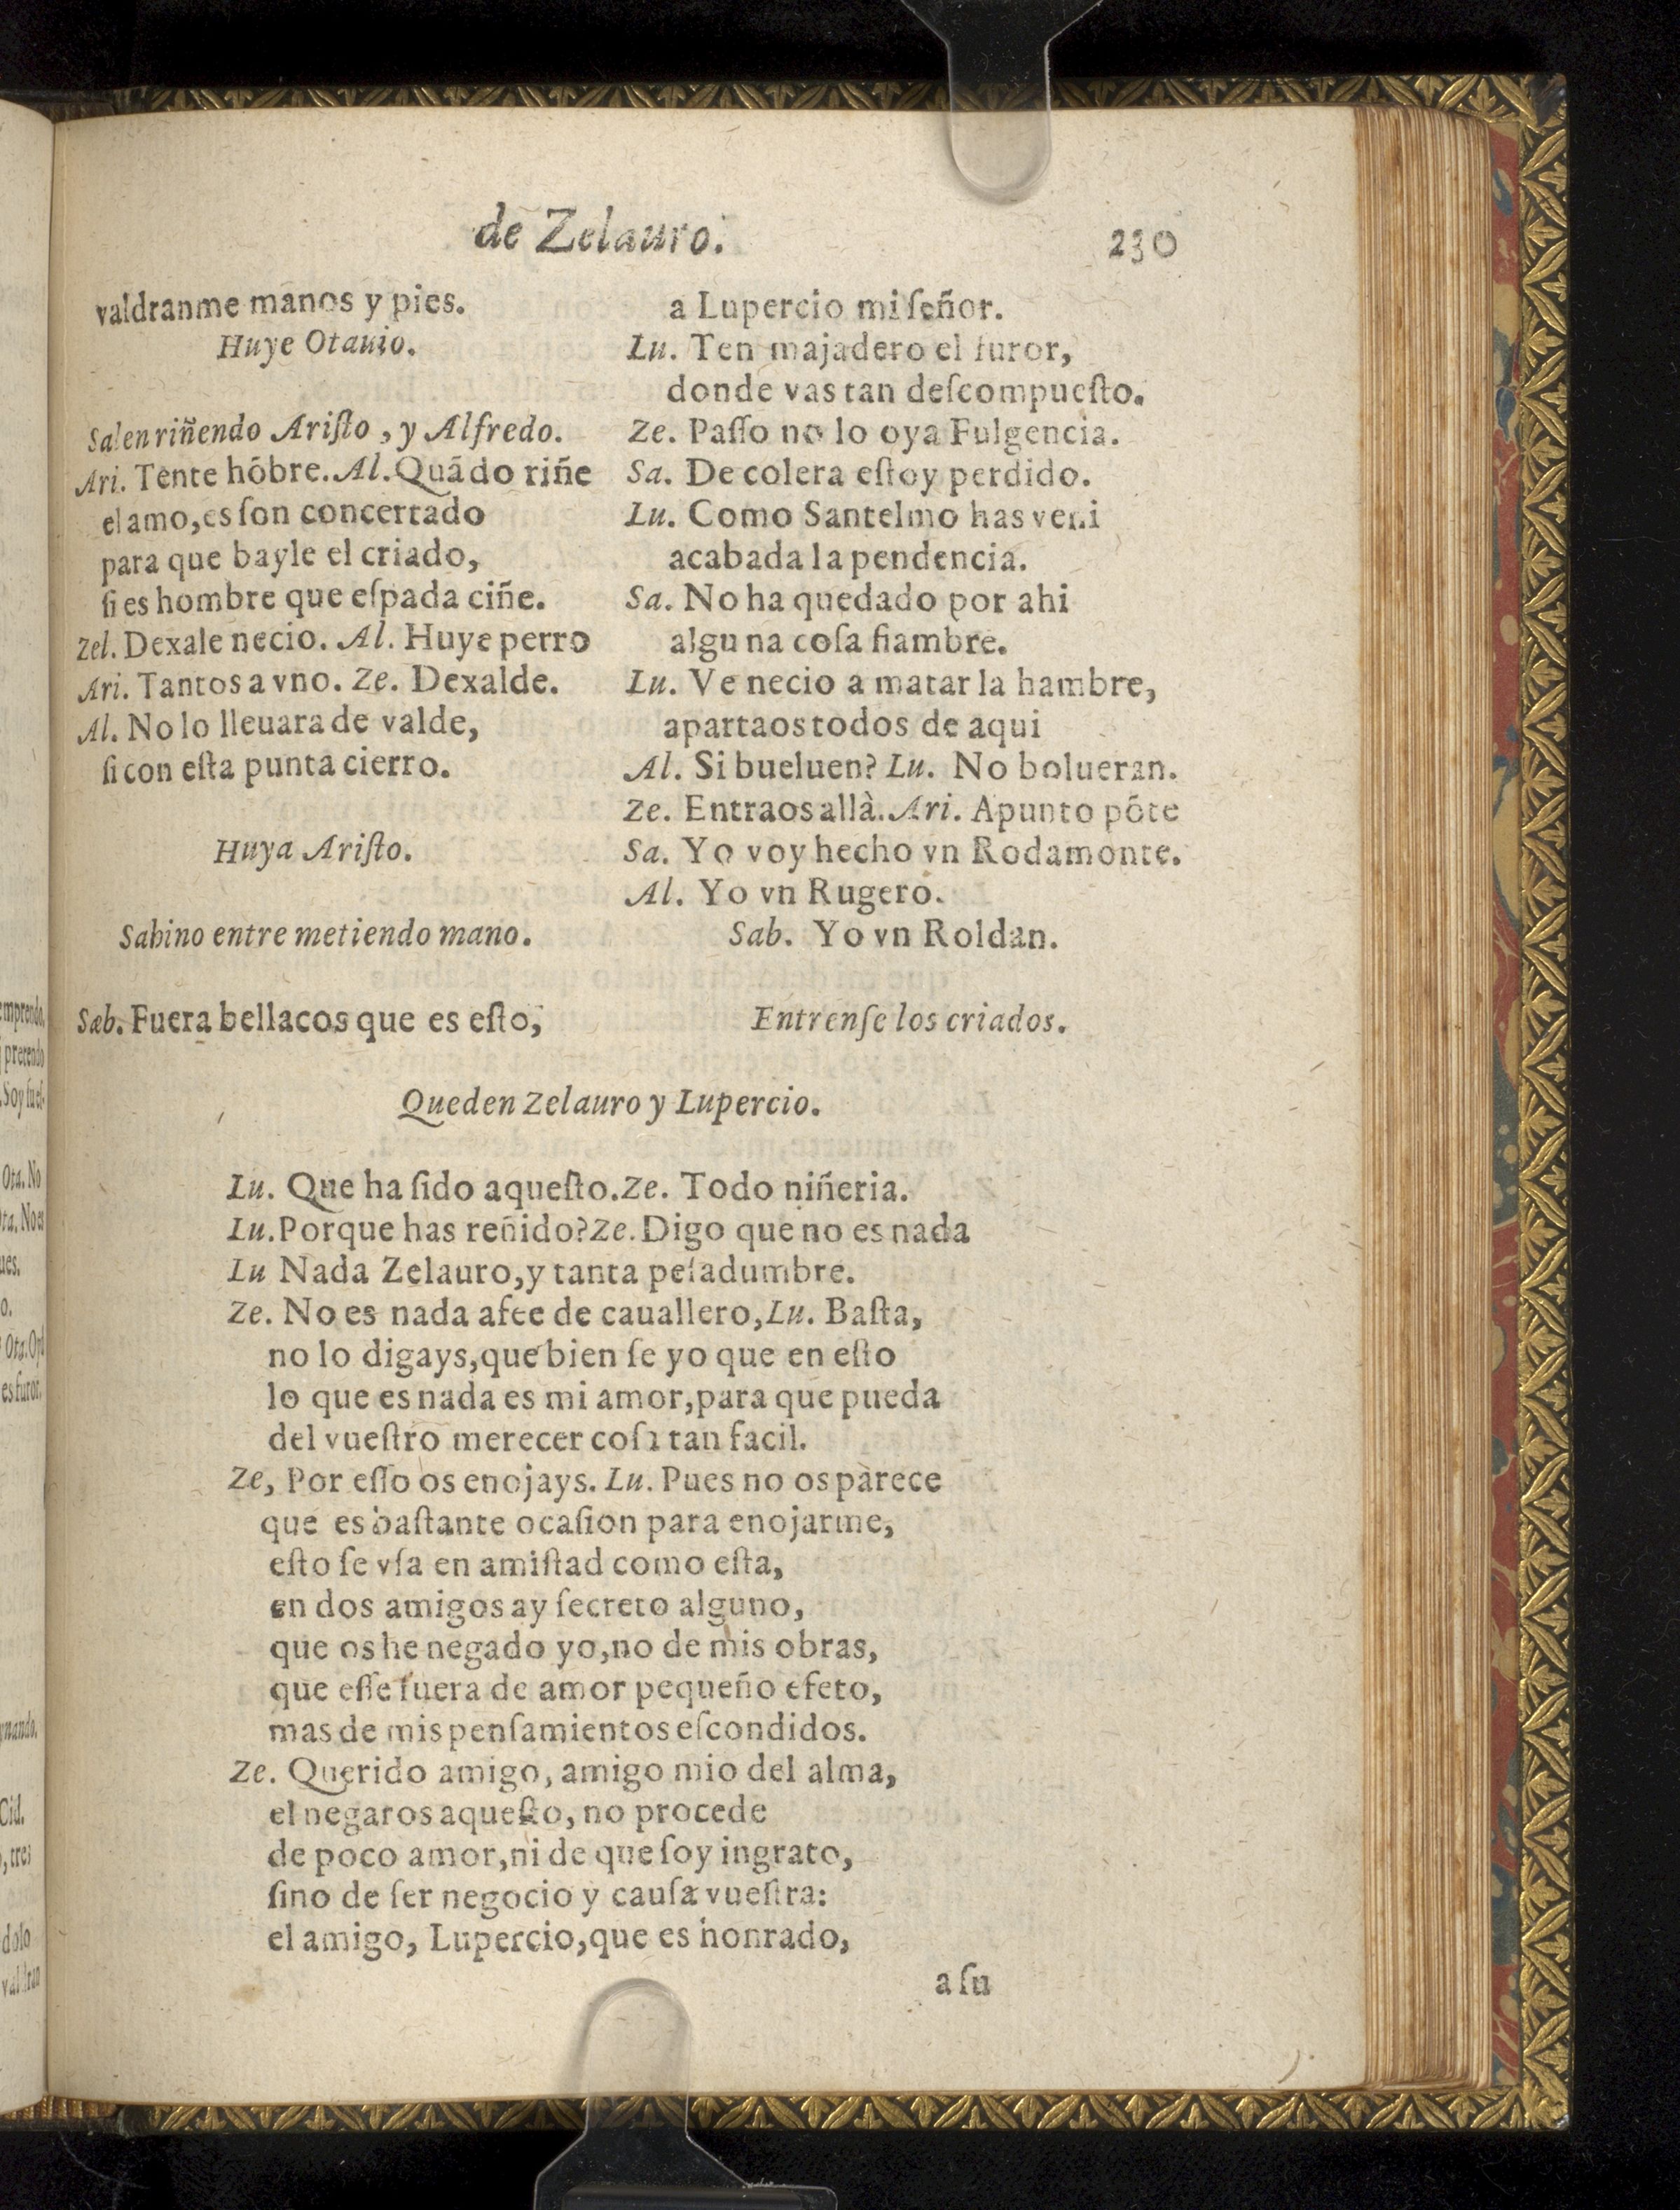 de Zelauro.
230
valdranme manos y pies.
Huye Otauio.
Salen riñendo Ariſto, y Alfredo.
Ari. Tente hõbre. Al. Quãdo riñe
el amo, es ſon concertado
para que bayle el criado,
ſi es hombre que eſpada ciñe.
Zel. Dexale necio. Al. Huye perro
Ari. Tantos a vno. Ze. Dexalde.
Al. No lo lleuara de valde,
ſi con eſta punta cierro.
Huya Ariſto.
Sabino entre metiendo mano.
Sab. Fuera bellacos que es eſto,
a Lupercio mi ſeñor.
Lu. Ten majadero el furor,
donde vas tan deſcompueſto.
Ze. Paſſo no lo oya Fulgencia.
Sa. De colera eſtoy perdido.
Lu. Como Santelmo has veni
acabada la pendencia.
Sa. No ha quedado por ahi
alguna coſa fiambre.
Lu. Ve necio a matar la hambre,
apartaos todos de aqui
Al. Si bueluen? Lu. No bolueran.
Ze. Entraos allà. Ari. Apunto põte
Sa. Yo voy hecho vn Rodamonte.
Al. Yo vn Rugero.
Sab. Yo vn Roldan.
Entrenſe los criados.
Queden Zelauro y Lupercio.
Lu. Que ha ſido aqueſto. Ze. Todo niñeria.
Lu. Porque has reñido? Ze. Digo que no es nada
Lu Nada Zelauro, y tanta peſadumbre.
Ze. No es nada afee de cauallero, Lu. Baſta,
no lo digays, que bien ſe yo que en eſto
lo que es nada es mi amor, para que pueda
del vueſtro merecer coſa tan facil.
Ze, Por eſſo os enojays. Lu. Pues no os parece
que es baſtante ocaſion para enojarme,
eſto ſe vſa en amiſtad como eſta,
en dos amigos ay ſecreto alguno,
que os he negado yo, no de mis obras,
que eſſe fuera de amor pequeño efeto,
mas de mis penſamientos eſcondidos.
Ze. Querido amigo, amigo mio del alma,
el negaros aqueſto, no procede
de poco amor, ni de que ſoy ingrato,
ſino de ſer negocio y cauſa vueſtra:
el amigo, Lupercio, que es honrado,
a ſu